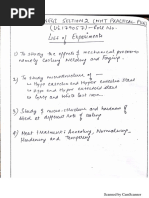 SECTION 2 (MMT PRACTICAL File
(UE179057) - Roll No.
List of Experiments
1) To study the effects of mechanical processes
namely casting welding and forging.
2) To study microstructure of —
→ Hypo eutectoid and Hyper eutectoid Steel
→ Hypo and Hyper eutectoid Steel
→
3) Study of micro-structure and hardness of
steel at different rates of cooling
4) Heat Treatment: Annealing, Normalizing,
Hardening and Tempering
Scanned by CamScanner